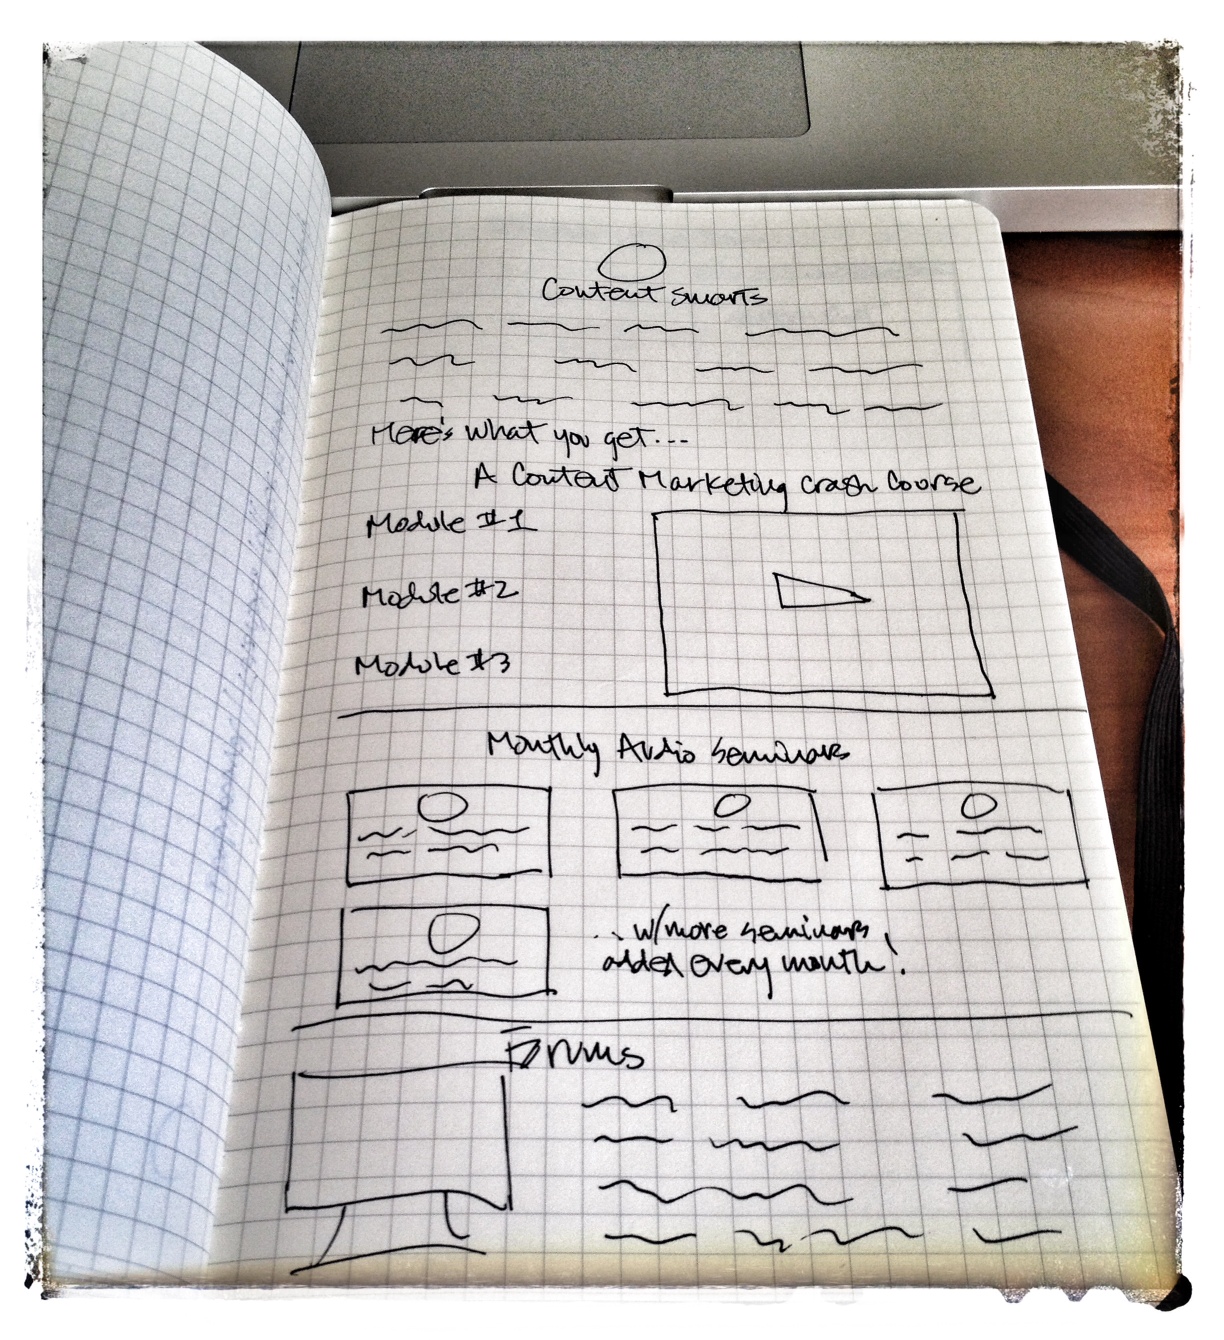 Content Smarts
Here's what you get...
A Content Marketing Crash Course
Module #1
Module #2
Module #3
Monthly Audio Seminars
... w/more seminars
added every month!
Forums